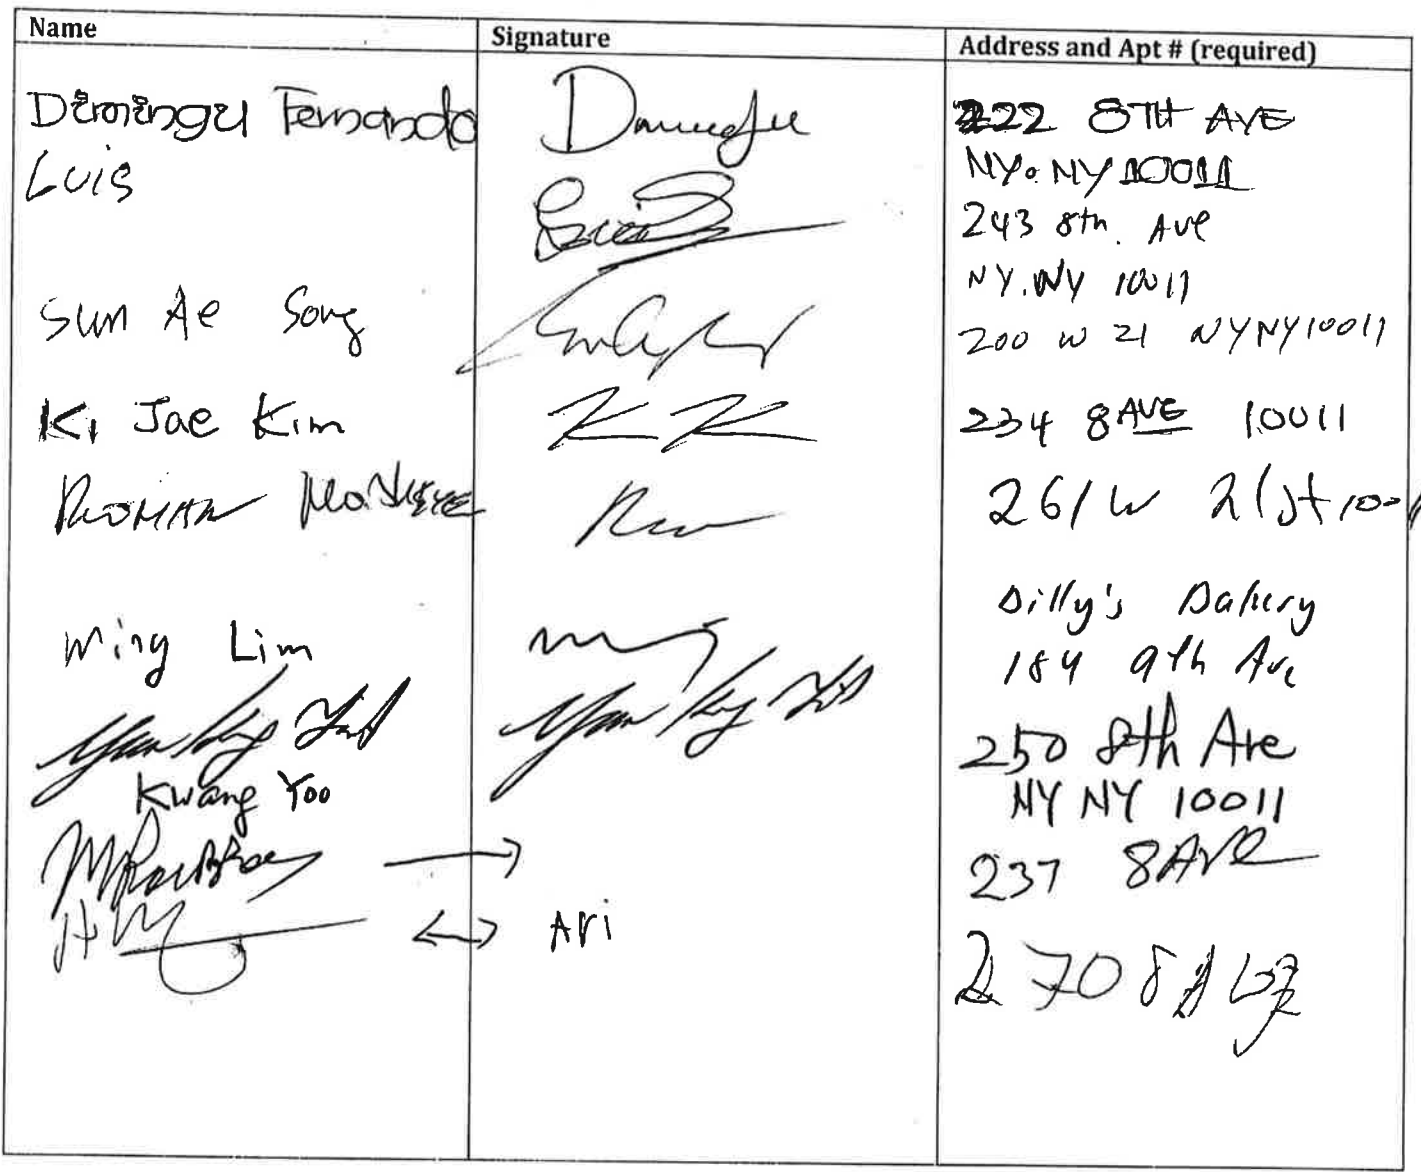 Name Signature Address and Apt # (required)
Dimingu Fernando 222 8TH AVE
NY. NY 10011
Luis Luis 243 8th. Ave
NY. NY 10011
Sun Ae Song 200 W 21 NY NY 10011
Ki Jae Kim KK 234 8 AVE 10011
ROMAN 261 W 21st
Ming Lim Billy's Bakery
184 9th Ave
250 8th Ave
Kwang Yoo NY NY 10011
237 8 Ave
Ari 270 8